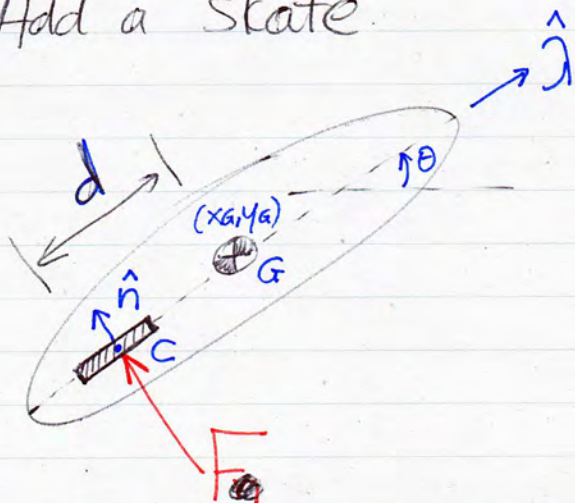 Add a Skate
λ̂
d
θ
(xG,yG)
G
n̂
C
F